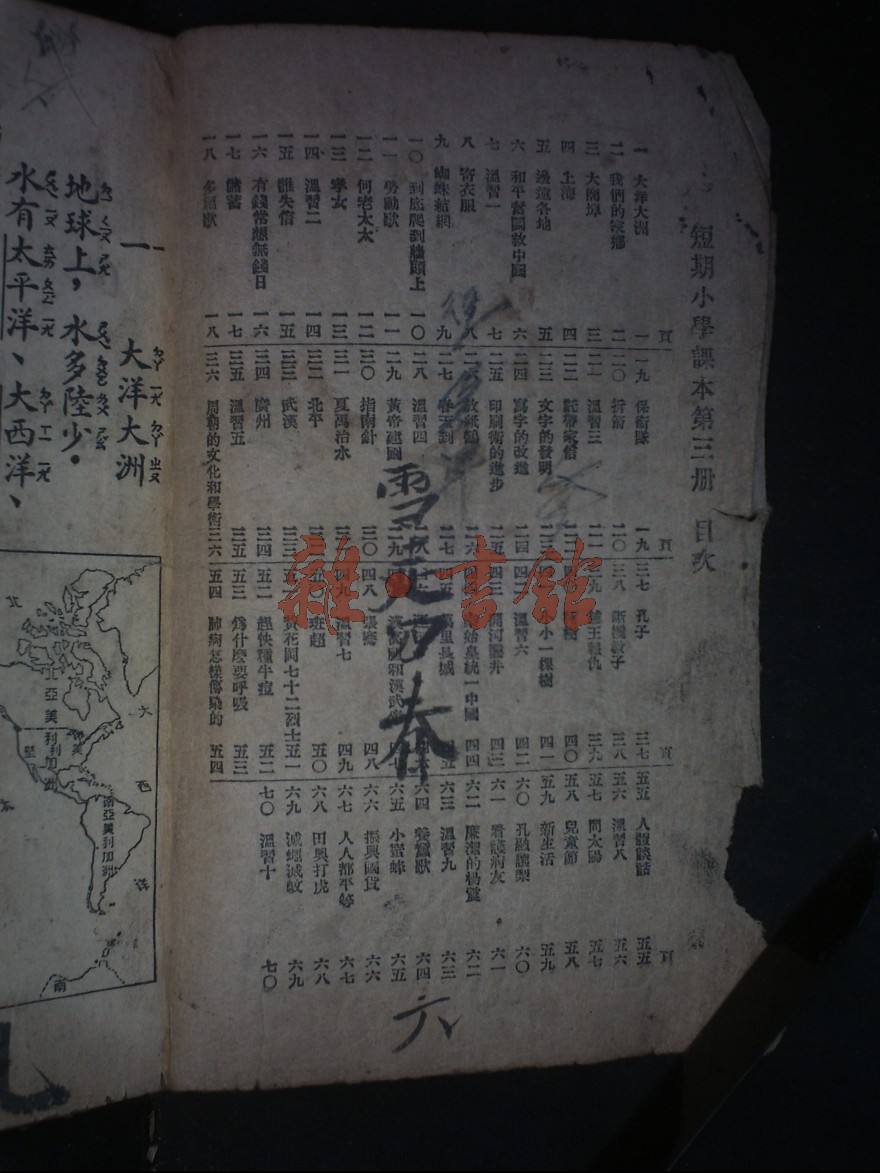 短期小學課本第三册 目次
頁
一 大洋大洲 一
二 我們的家鄉 二
三 大商埠 三
四 上海 四
五 邊遠各地 五
六 和平奮鬬救中國 六
七 溫習一 七
八 寄衣服 八
九 蜘蛛結網 九
一〇 到底爬到牆頭上 一〇
一一 勞動歌 一一
一二 何老太太 一二
一三 孝女 一三
一四 溫習二 一四
一五 誰失信 一五
一六 有錢常想無錢日 一六
一七 儲蓄 一七
一八 多謝歌 一八
頁
一九 保衛隊 一九
二〇 折箭 二〇
二一 溫習三 二一
二二 託帶家信
二三 文字的發明 二三
二四 寫字的改進 二四
二五 印刷術的進步 二五
二六 放紙鷂 二六
二七 春天到 二七
二八 溫習四 二八
二九 黃帝建國 二九
三〇 指南針 三〇
三一 夏禹治水 三一
三二 北平
三三 武漢 三三
三四 廣州 三四
三五 溫習五 三五
三六 周朝的文化和學術 三六
頁
三七 孔子 三七
三八 斷機教子 三八
三九 王報仇 三九
樹 四〇
小小一棵樹 四一
四二 溫習六 四二
四三 開河鑿井 四三
始皇統一中國 四四
四五 萬里長城 四五
和漢武帝
四八 張騫 四八
四九 溫習七 四九
班超 五〇
黃花岡七十二烈士 五一
五二 趕快種牛痘 五二
五三 爲什麼要呼吸 五三
五四 肺病怎樣傳染的 五四
頁
五五 人體談話 五五
五六 溫習八 五六
五七 問太陽 五七
五八 兒童節 五八
五九 新生活 五九
六〇 孔融讓梨 六〇
六一 看護病友 六一
六二 廉潔的楊震 六二
六三 溫習九 六三
六四 養蠶歌 六四
六五 小蜜蜂 六五
六六 振興國貨 六六
六七 人人都平等 六七
六八 田興打虎 六八
六九 滅蠅滅蚊 六九
七〇 溫習十 七〇
春
六
雜·書館
一 大洋大洲
地球上，水多陸少。
水有太平洋、大西洋、
北
大
西
洋
北亞美利加洲
南亞美利加洲
南